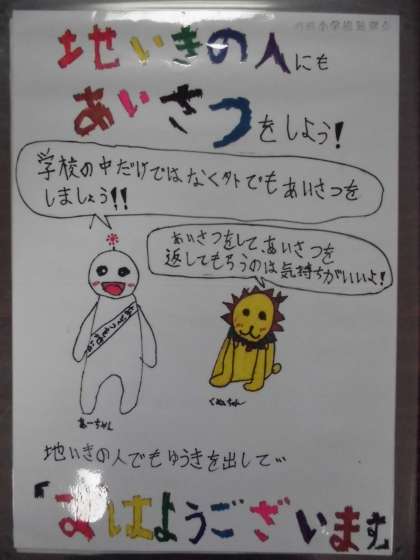 地いきの人にも
あいさつをしよう!
学校の中だけではなく外でもあいさつを
しましょう!!
あいさつをして、あいさつを
返してもらうのは気持ちがいいよ!
あーちゃん
くぬちゃん
地いきの人でもゆうきを出して…
「おはようございます」